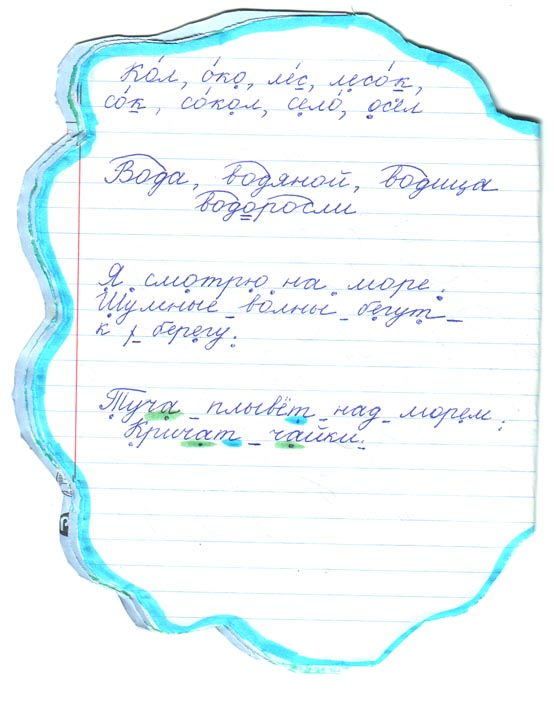 Ко́л, о́ко, ле́с, лесо́к,
со́к, со́кол, село́, осёл
Вода, водяной, водица
водоросли
Я смотрю на море.
Шумные волны бегут
к берегу.
Туча плывёт над морем.
Кричат чайки.